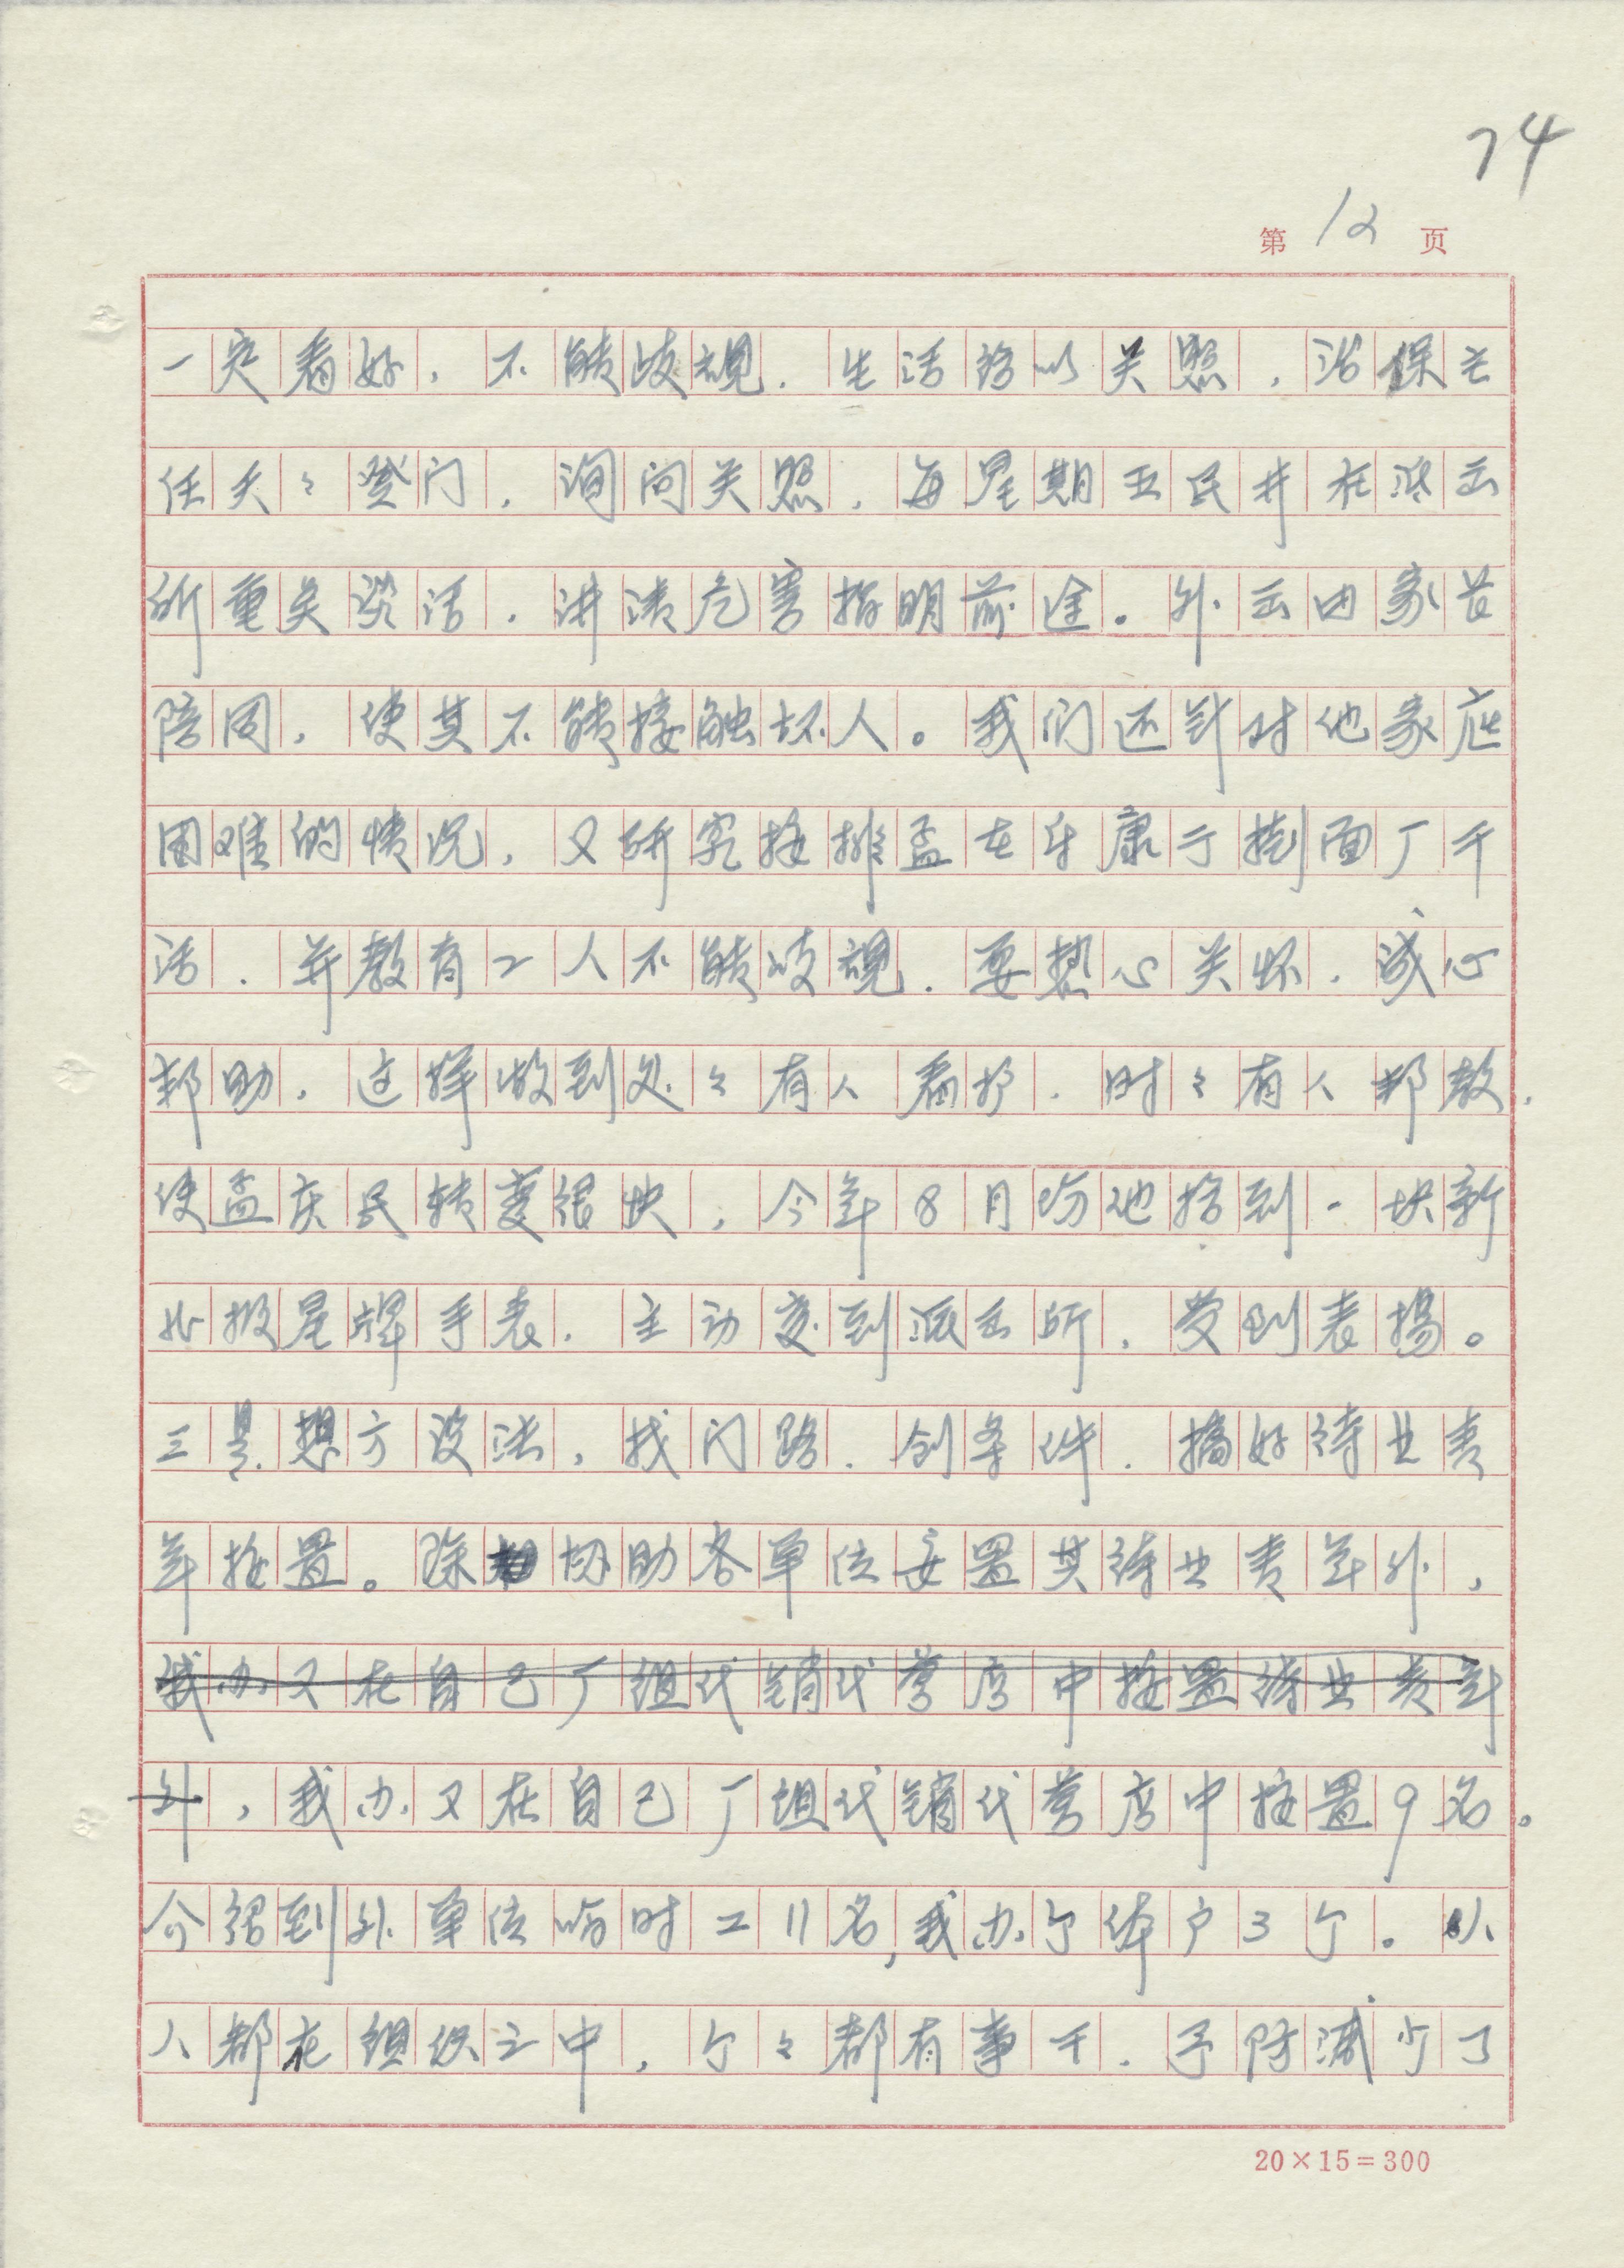 74
第12页
一定看好，不能歧视，生活给以关照，治保主
任天々登门，询问关照，每星期五民井在派出
所重关谈话，讲清危害指明前途。外出由家长
陪同，使其不能接触坏人。我们还针对他家庭
困难的情况，又研究按排孟在午康子挂面厂干
活，并教育工人不能歧视，要热心关怀，诚心
邦助，这样做到处々有人看护，时々有人邦教，
使孟庆民转变很快，今年8月份他拾到一块新
北极星牌手表，主动交到派出所，受到表揚。
三是想方设法，找门路，创条件，搞好待业青
年按置。除协助各单位安置其待业青年外，
我办又在自己厂组代销代营店中按置待业青年
外，我办又在自己厂组代销代营店中按置9名。
介绍到外单位临时工11名，我办个体户3个。以
人都在组织之中，个々都有事干，予防减少了
20×15=300